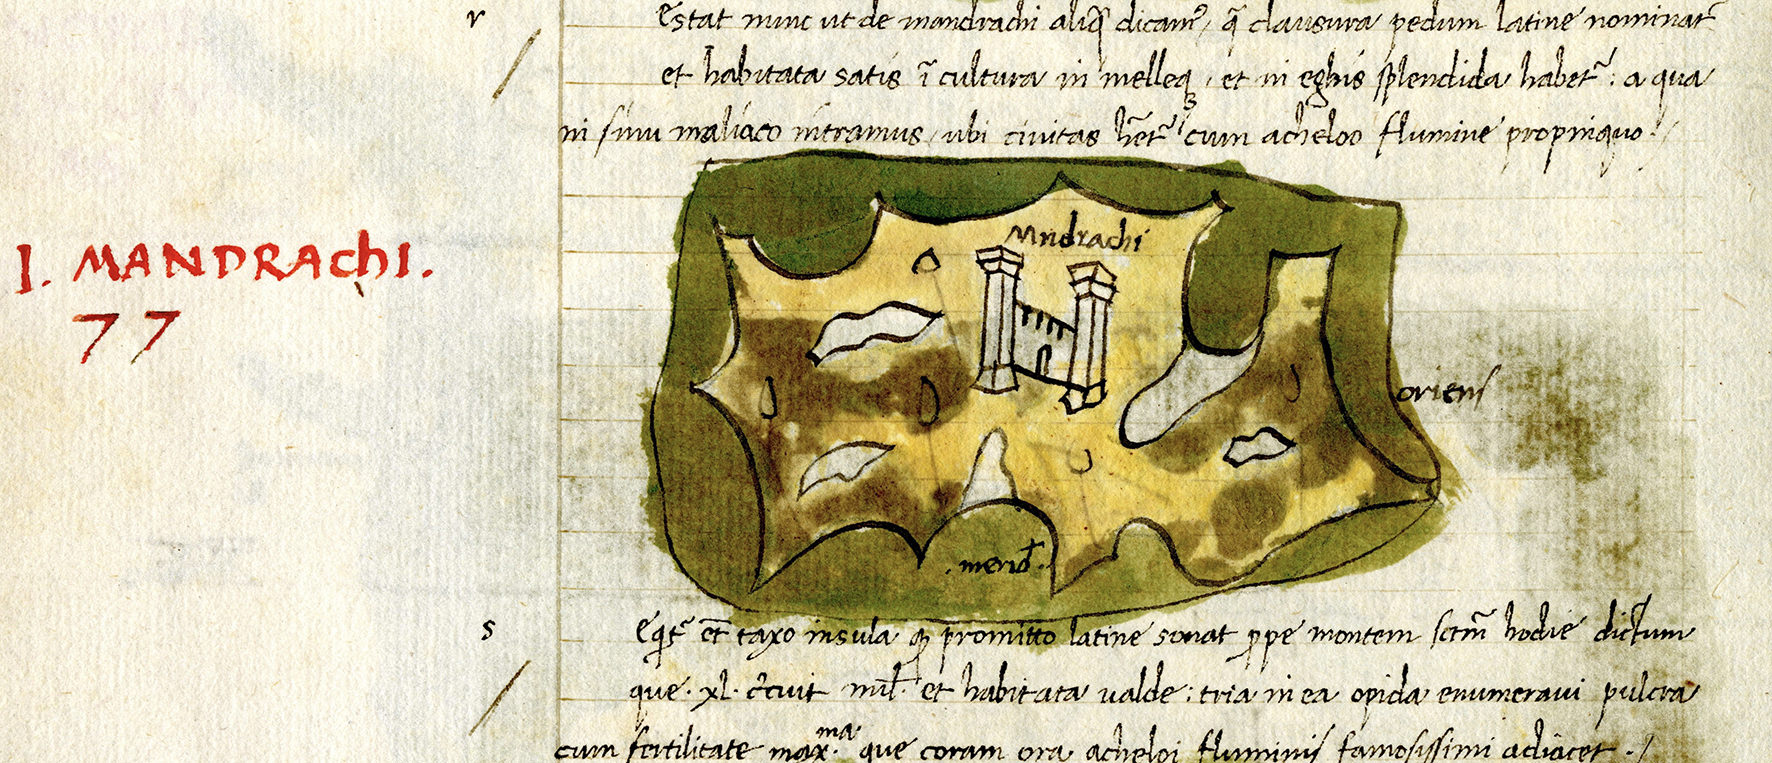 r
Estat nunc ut de mandrachi aliq̃ dicamꝰ, q̃ clausura pedum latine nominatᷣ
et habitata satis ĩ cultura in melleqꝫ, et in eghis splendida habetᷣ: a qua
in sinu maliaco intramus, ubi civitas hẽtᷣ cum acheloo flumine propinquo./
I. MANDRACHI.
77
Mndrachi
oriens
.merid̄.
s
Eqitᷣ et̃ taxo insula q promitto latine sonat ꝓpe montem sctm̃ hodie dictum
que .xl. circuit mil̃. et habitata valde: tria in ea opida enumeravi pulcra
cum fertilitate max.ᵐᵃ que coram ora acheloi fluminis famosissimi adiacet ./